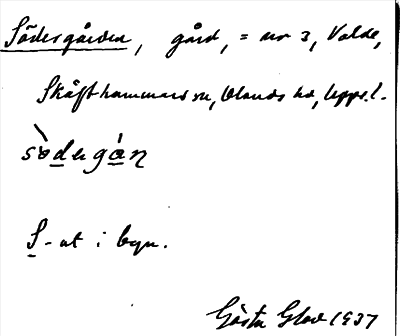 Södergården, gård, = nr 3, Valde,
Skäfthammars sn, Olands hd, Upps. l.
sò̀dergá̀n
S-ut i byn.
Gösta Glad 1937